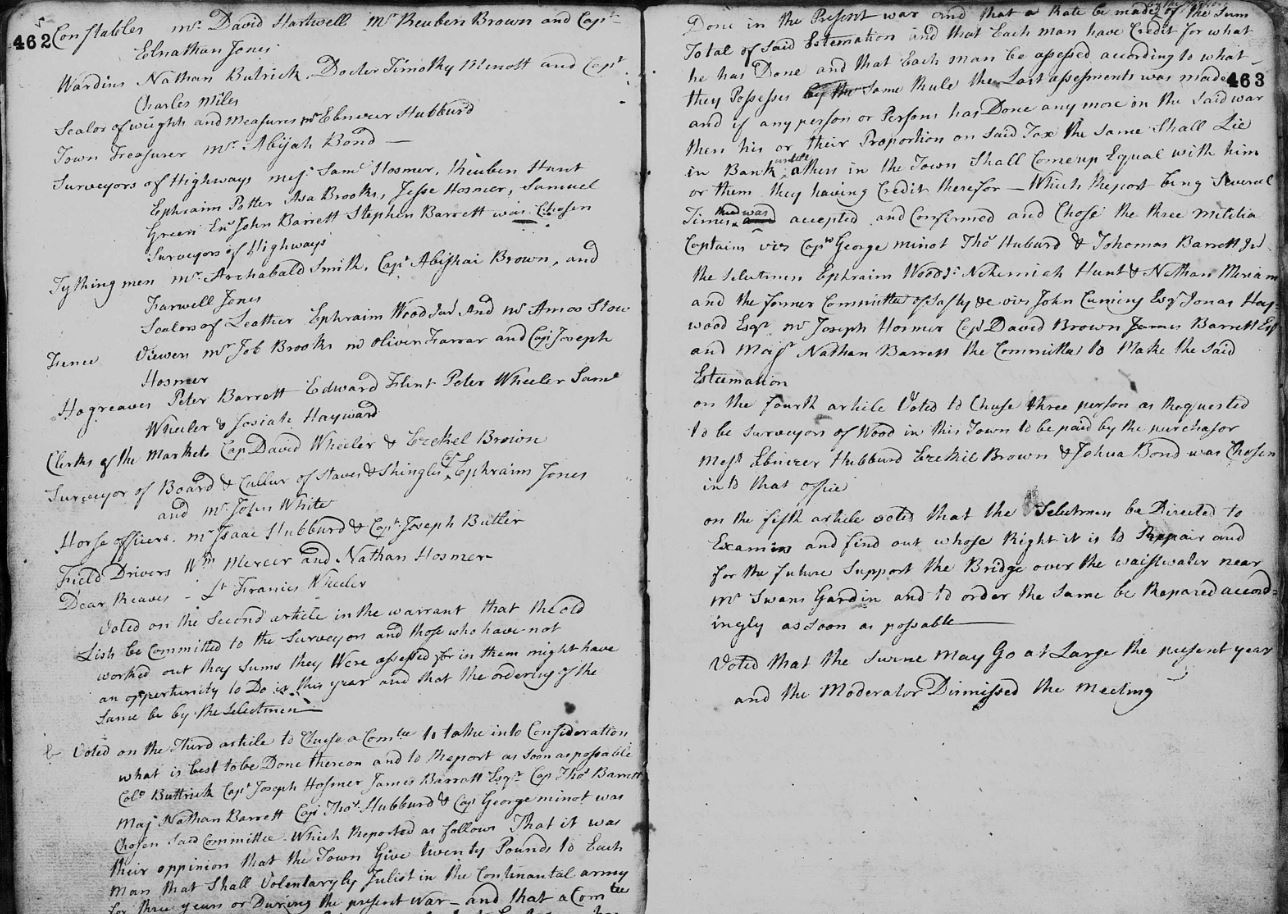 462
Constables mr. David Hartwell Mr Reuben Brown and Capt
Elnathan Jones
Wardins Nathan Butrick Docter Timothy Minott and Capt
Charles Miles
Sealor of weights and Measures mr Ebenezer Hubburd
Town Treasurer mr. Abijah Bond
Surveyors of Highways Saml Hosmer, Reuben Hunt
Ephraim Potter Asa Brooks, Jesse Hosmer, Samuel
Green Ens John Barrett Stephen Barrett was Chosen
Surveyors of Highways
Tything men mr. Archabald Smith, Capt Abishai Brown, and
Farwell Jones
Sealors of Leather Ephraim Wood Jur And mr Amos Stow
Fence Viewers mr Job Brooks mr Oliver Farrar and Cap Joseph
Hosmer
Hogreaves Peter Barrett Edward Flint Peter Wheeler Saml
Wheeler & Josiah Hayward
Clerks of the Markets Cap David Wheeler & Ezekel Brown
Surveyor of Board & Cullur of Staves & Shingles Ephraim Jones
and mr John White
Horse officers. mr Isaac Hubburd & Capt Joseph Butler
Field Drivers Wm Mercer and Nathan Hosmer
Dear Reaves - Lt Francis Wheeler
Voted on the Second article in the warrant that the old
Lists be Committed to the Surveyors and those who have not
worked out thay sums they Were assessed for in them might have
an oppertunity to Do it this year and that the ordering of the
Same be by the Selectmen
Voted on the Third article to Chuse a Comtee to take into Consideration
what is best to be Done thereon and to Report as soon as possable
Colo Buttrick Capt Joseph Hosmer James Barratt Esqr Cap Thos Barrett
Maj Nathan Barrett Cap Thos Hubburd & Cap George minot was
Chosen Said Committee. Which Reported as follows That it was
their oppinion that the Town Give twenty Pounds to Each
Man that Shall Voluntaryly Inlist in the Continantal army
for three years or During the present War - and that a Comtee
463
Done in the Present war and that a Rate be made of the Sum
Total of Said Estemation and that Each man have Credit for what
he has Done and that Each man be asessed according to what
they Possesses by the Same Rule the Last assessments was made
and if any person or Persons has Done any more in the said war
then his or their Proportion on Said Tax the Same Shall Lie
in Bank untill others in the Town Shall Come up Equal with him
or them they having Credit therefor - Which Report being Several
Times accepted and Confirmed and Chose the three melitia
Captains viz Capt George minot Thos Huburd & Thomas Barrett
the Selectmen Ephraim Wood Jr Nehemiah Hunt & Nathan Meriam
and the former Committee of Safty &c viz John Cuming Esqr Jonas Hay
wood Esqr mr Joseph Hosmer Cap David Brown James Barrett Esqr
and Majr Nathan Barrett the Committee to Make the Said
Estemation
on the fourth article Voted to Chuse three person as Requested
to be Surveyors of Wood in this Town to be paid by the purchasor
Mess Ebenezer Hubburd Ezekiel Brown & Johua Bond was Chosen
into that offic
on the fifth article voted that the Selectmen be Directed to
Examine and find out whose Right it is to Repair and
for the future Support the Bridge over the waistwater near
Mr Swans Gardin and to order the Same be Repared accord=
ingly as soon as possable
Voted that the Swine May Go at Large the present year
and the Moderator Dismissed the Meeting